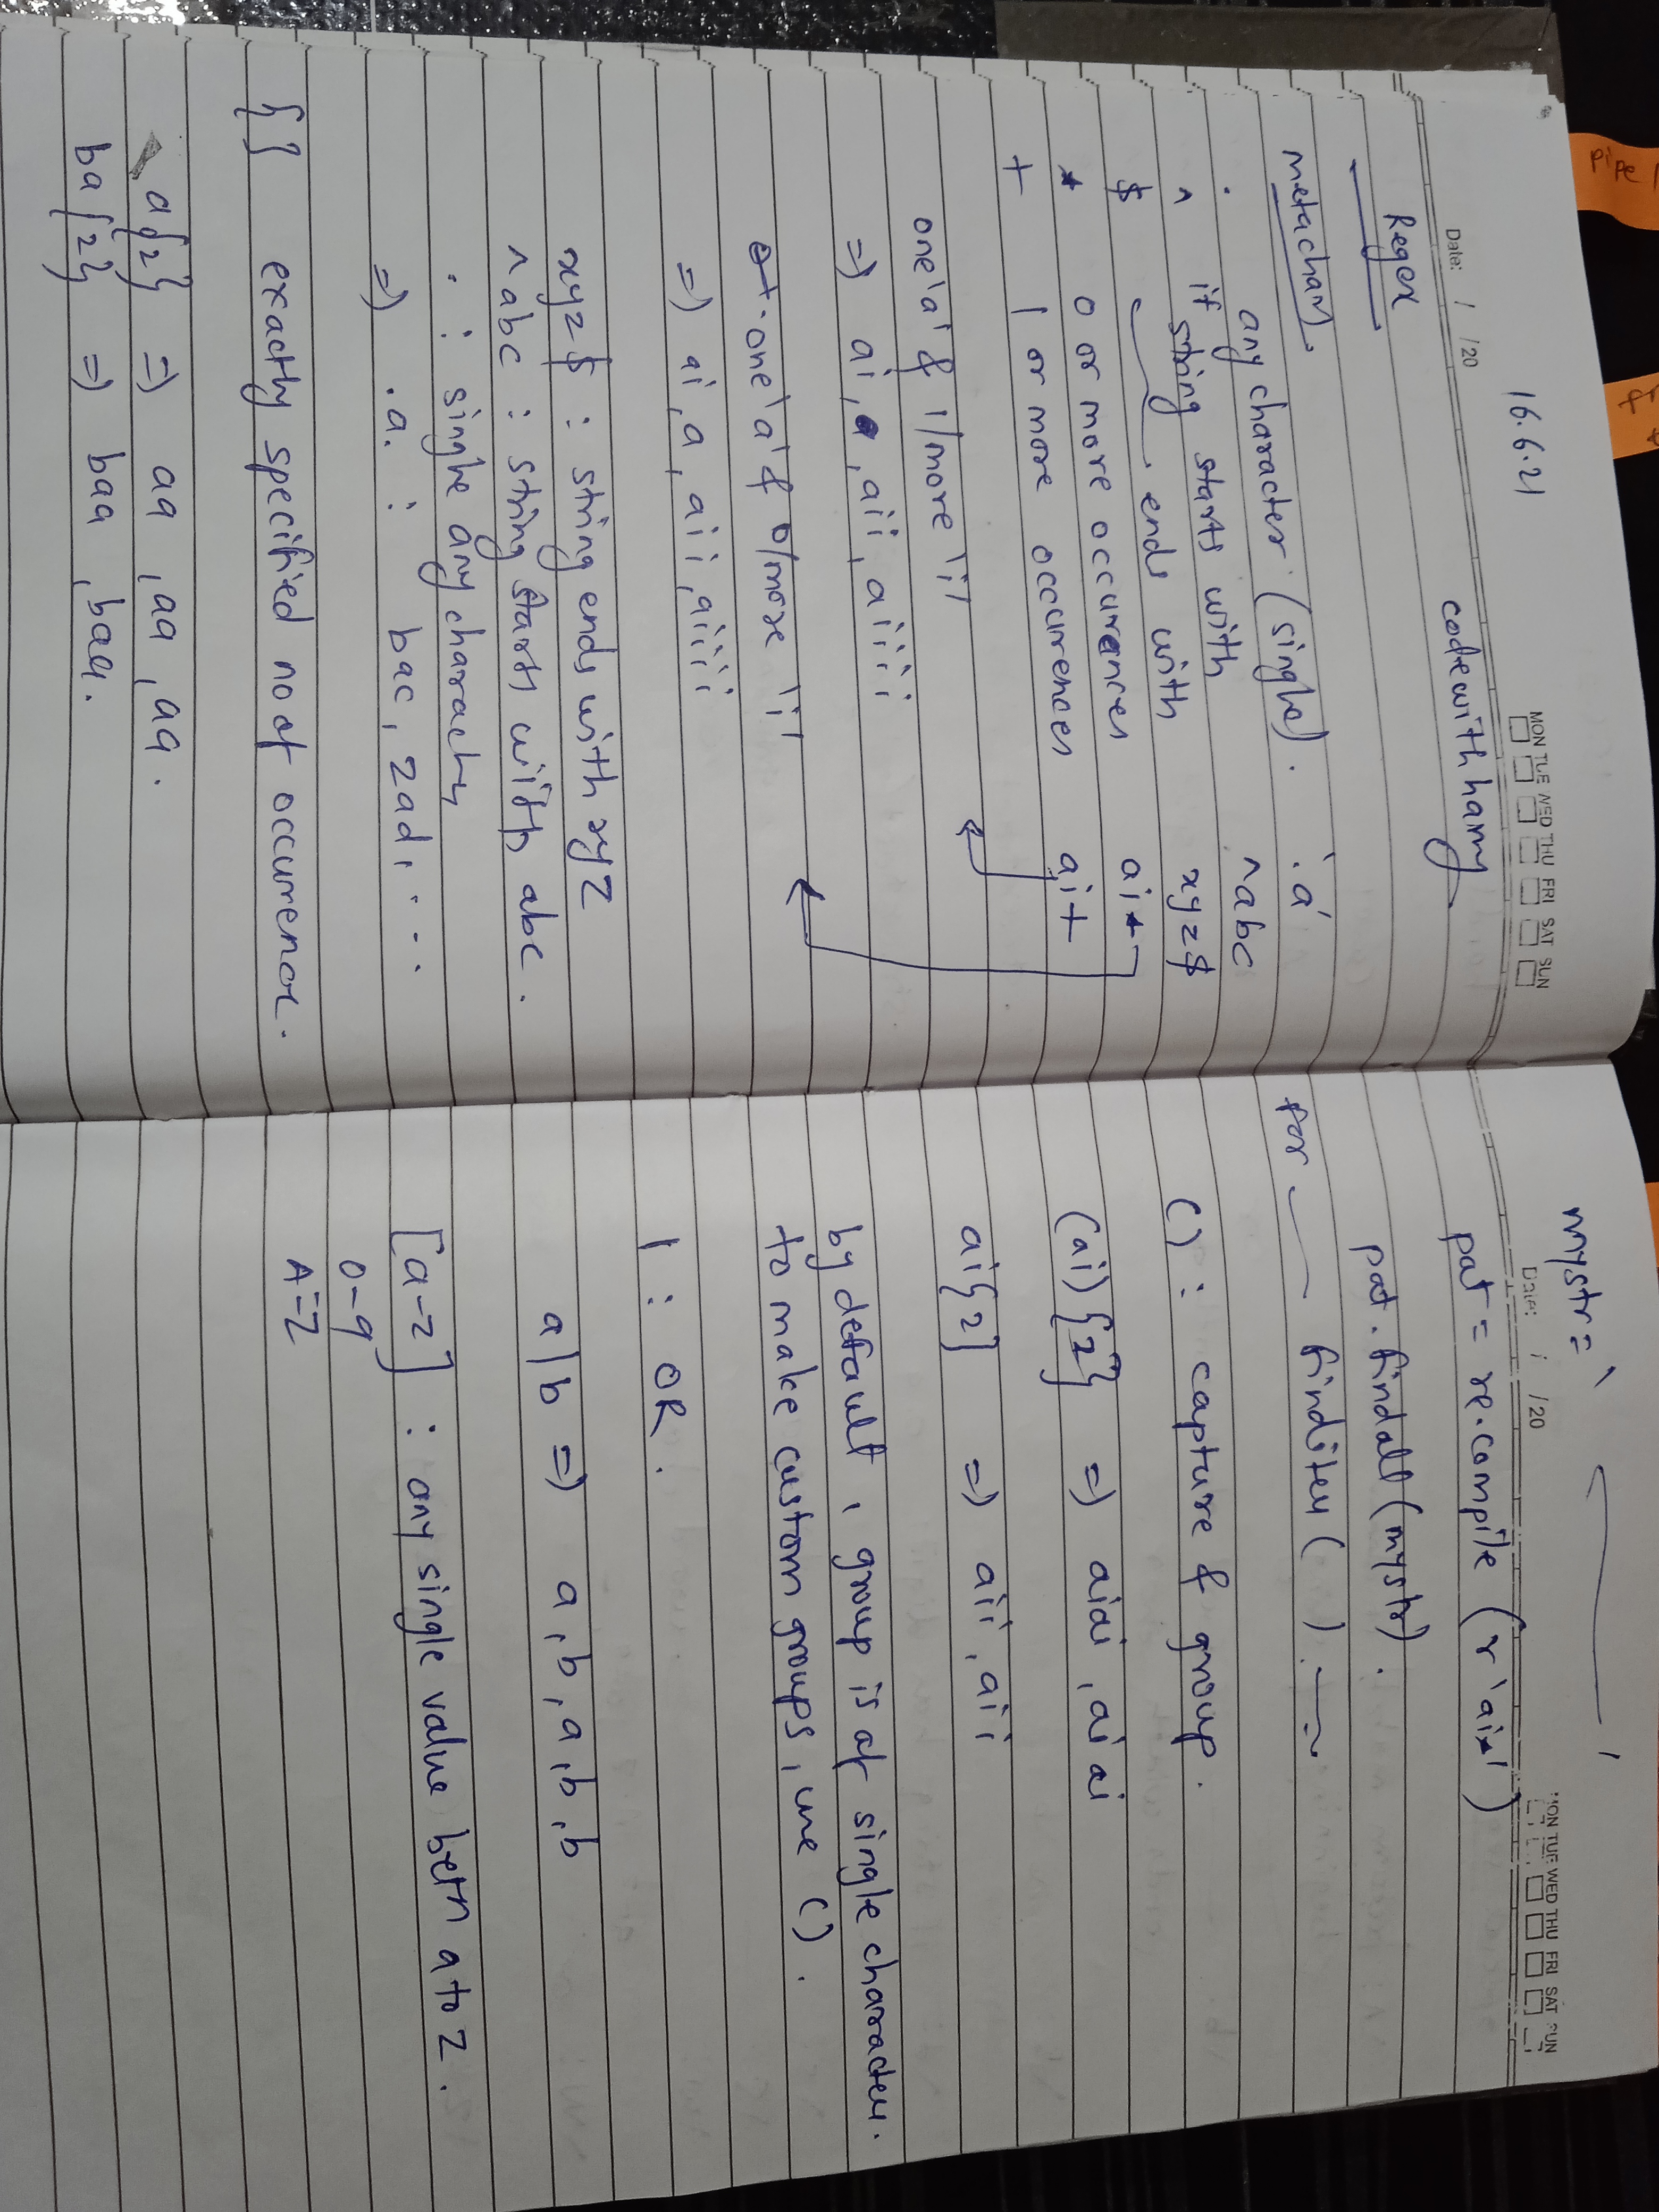 16.6.21
Date: / /20
MON TUE WED THU FRI SAT SUN
codewithharry
Regex
metachars.
. any character (single). '.a'
^ if string starts with ^abc
$ ends with xyz$
* 0 or more occurences ai*
+ 1 or more occurences ai+
one 'a' & 1/more 'i'
=> ai, a, aii, aiiii
one 'a' & 0/more 'i'
=> ai, a, aii, aiiii
xyz$ : string ends with xyz
^abc : string starts with abc.
. : single any character
=> .a. : bac, zad, ...
{} exactly specified no of occurrence.
a{2} => aa, aa, aa.
ba{2} => baa, baa.
mystr = ' '
Date: / /20
MON TUE WED THU FRI SAT SUN
pat = re.compile (r'ai*')
pat.findall(mystr).
for finditer( )
() : capture & group.
(ai){2} => aiai, aiai
ai{2} => aii, aii
by default, group is of single character.
to make custom groups, use ().
| : OR.
a|b => a, b, a, b, b
[a-z] : any single value betn a to z.
0-9
A-Z
pipe